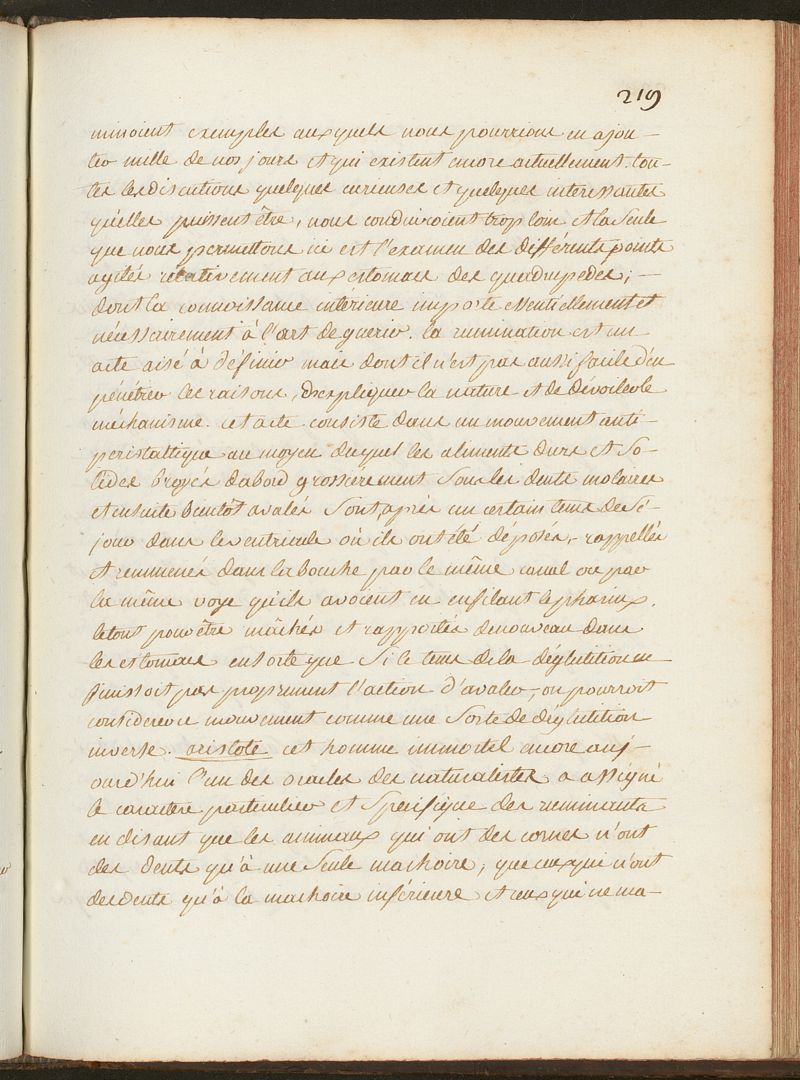 219
minoient exemples auxquels nous pourrions en ajou-
ter mille de nos jours et qui existent encore actuellement. tou-
tes les discutions quelques curieuses et quelques interessantes
qu'elles puissent être, nous conduiroient trop loin et la seule
que nous permettons ici est l'examen des différents points
agités relativement aux estomacs des quadrupedes, -
dont la connoissance intérieure importe essentiellement et
nécessairement à l'art de guerir. la rumination est un
acte aisé à définir mais dont il n'est pas aussi facile d'en
pénétrer les raisons, d'expliquer la nature et de dévoiler le
méchanisme. cet acte consiste dans un mouvement anti-
peristaltique au moyen duquel les aliments durs et so-
lides broyés d'abord grossierement sous les dents molaires
et ensuite bientôt avalés sont, après un certain tems de sé-
jour dans le ventricule où ils ont été déposés, - rappellés
et remmenés dans la bouche par le même canal ou par
la même voye qu'ils avoient en enfilant le pharinx.
le tout pour être mâchés et rapportés de nouveau dans
les estomacs ensorte que si le tems de la déglutition ne
finissoit pas proprement l'action d'avaler, on pourroit
considerer ce mouvement comme une sorte de déglutition
inverse. aristote cet homme immortel encore auj-
ourd'hui l'un des oracles des naturalistes a assigné
le caractère particulier et spécifique des ruminants
en disant que les animaux qui ont des cornes n'ont
des dents qu'à une seule machoire, que ceux qui n'ont
des dents qu'à la machoire inférieure et ceux qui ne ma-